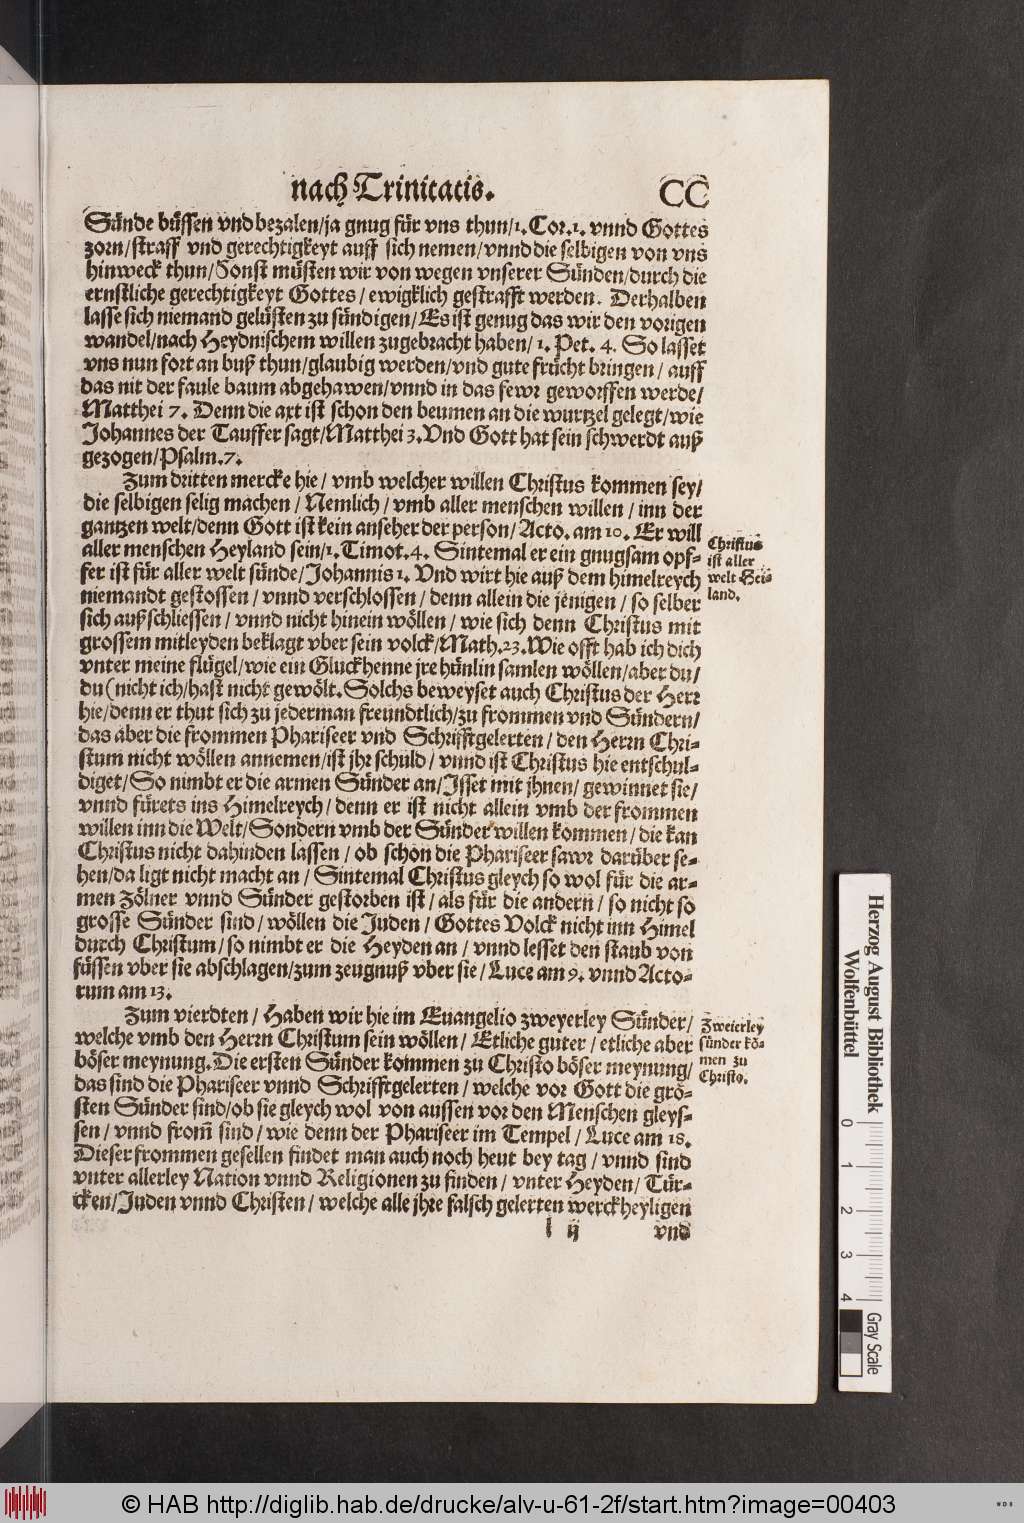 nach Trinitatis. CC
Sünde büssen vnd bezalen/ja gnug für vns thun/1. Cor.1. vnnd Gottes
zorn/straff vnd gerechtigkeyt auff sich nemen/vnnd die selbigen von vns
hinweck thun/Sonst müsten wir von wegen vnserer Sünden/durch die
ernstliche gerechtigkeyt Gottes/ewigklich gestrafft werden. Derhalben
lasse sich niemand gelüsten zu sündigen/Es ist genug das wir den vorigen
wandel/nach Heydnischem willen zugebracht haben/1. Pet. 4. So lasset
vns nun fort an buß thun/glaubig werden/vnd gute frücht bringen/auff
das nit der faule baum abgehawen/vnnd in das fewr geworffen werde/
Matthei 7. Denn die axt ist schon den beumen an die wurtzel gelegt/wie
Johannes der Tauffer sagt/Matthei 3. Vnd Gott hat sein schwerdt auß
gezogen/Psalm.7.
Zum dritten mercke hie/vmb welcher willen Christus kommen sey/
die selbigen selig machen/Nemlich/vmb aller menschen willen/inn der
gantzen welt/denn Gott ist kein anseher der person/Acto. am 10. Er will
aller menschen Heyland sein/1. Timot.4. Sintemal er ein gnugsam opf-
fer ist für aller welt sünde/Johannis 1. Vnd wirt hie auß dem himelreych
niemandt gestossen/vnnd verschlossen/denn allein die jenigen/so selber
sich außschliessen/vnnd nicht hinein wöllen/wie sich denn Christus mit
grossem mitleyden beklagt vber sein volck/Math.23. Wie offt hab ich dich
vnter meine flügel/wie ein Gluckhenne jre hünlin samlen wöllen/aber du/
du (nicht ich/hast nicht gewölt. Solchs beweyset auch Christus der Herr
hie/denn er thut sich zu jederman freundtlich/zu frommen vnd Sündern/
das aber die frommen Phariseer vnd Schrifftgelerten/den Herrn Chri-
stum nicht wöllen annemen/ist jhr schuld/vnnd ist Christus hie entschul-
diget/So nimbt er die armen Sünder an/Isset mit jhnen/gewinnet sie/
vnnd fürets ins Himelreych/denn er ist nicht allein vmb der frommen
willen inn die Welt/Sondern vmb der Sünder willen kommen/die kan
Christus nicht dahinden lassen/ob schon die Phariseer sawr darüber se-
hen/da ligt nicht macht an/Sintemal Christus gleych so wol für die ar-
men Zölner vnnd Sünder gestorben ist/als für die andern/so nicht so
grosse Sünder sind/wöllen die Juden/Gottes Volck nicht inn Himel
durch Christum/so nimbt er die Heyden an/vnnd lesset den staub von
füssen vber sie abschlagen/zum zeugnuß vber sie/Luce am 9. vnnd Acto-
rum am 13.
Christus
ist aller
welt Hei-
land.
Zum vierdten/Haben wir hie im Euangelio zweyerley Sünder/
welche vmb den Herrn Christum sein wöllen/Etliche guter/etliche aber
böser meynung. Die ersten Sünder kommen zu Christo böser meynung/
das sind die Phariseer vnnd Schrifftgelerten/welche vor Gott die grö-
sten Sünder sind/ob sie gleych wol von aussen vor den Menschen gleys-
sen/vnnd from̃ sind/wie denn der Phariseer im Tempel/Luce am 18.
Dieser frommen gesellen findet man auch noch heut bey tag/vnnd sind
vnter allerley Nation vnnd Religionen zu finden/vnter Heyden/Tür-
cken/Juden vnnd Christen/welche alle jhre falsch gelerten werckheyligen
Zweierley
sünder kö-
men zu
Christo.
l ij vnd
Herzog August Bibliothek
Wolfenbüttel
0 1 2 3 4
Gray Scale
© HAB http://diglib.hab.de/drucke/alv-u-61-2f/start.htm?image=00403